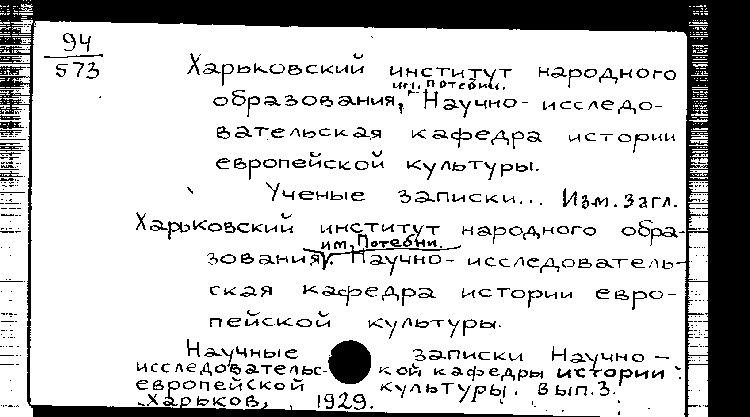 94
573
Харьковский институт народного
им. Потебни.
образования, Научно-исследо-
вательская кафедра истории
европейской культуры.
Ученые записки... Изм. загл.
Харьковский институт народного обра-
им. Потебни.
зования. Научно-исследователь-
ская кафедра истории евро-
пейской культуры.
Научные записки Научно-
исследовательской кафедры истории
европейской культуры. Вып. 3.
Харьков, 1929.